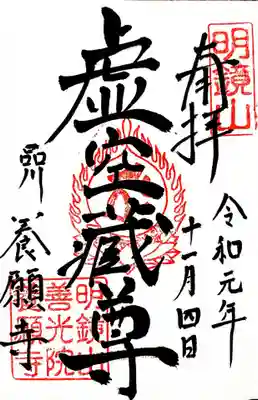 奉拝
明鏡山
令和元年
十一月四日
虚空蔵尊
品川
養願寺
明鏡山
善光院
養願寺